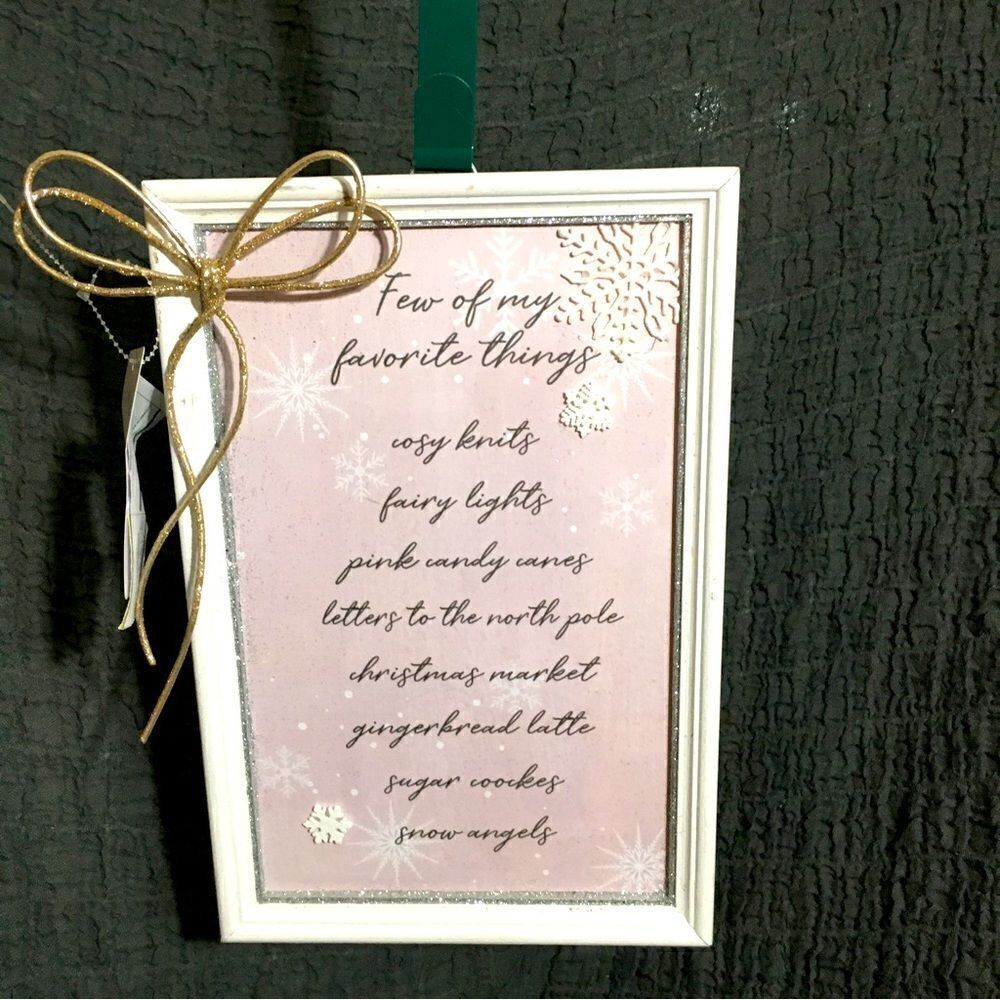 Few of my
favorite things
cosy knits
fairy lights
pink candy canes
letters to the north pole
christmas market
gingerbread latte
sugar coockes
snow angels